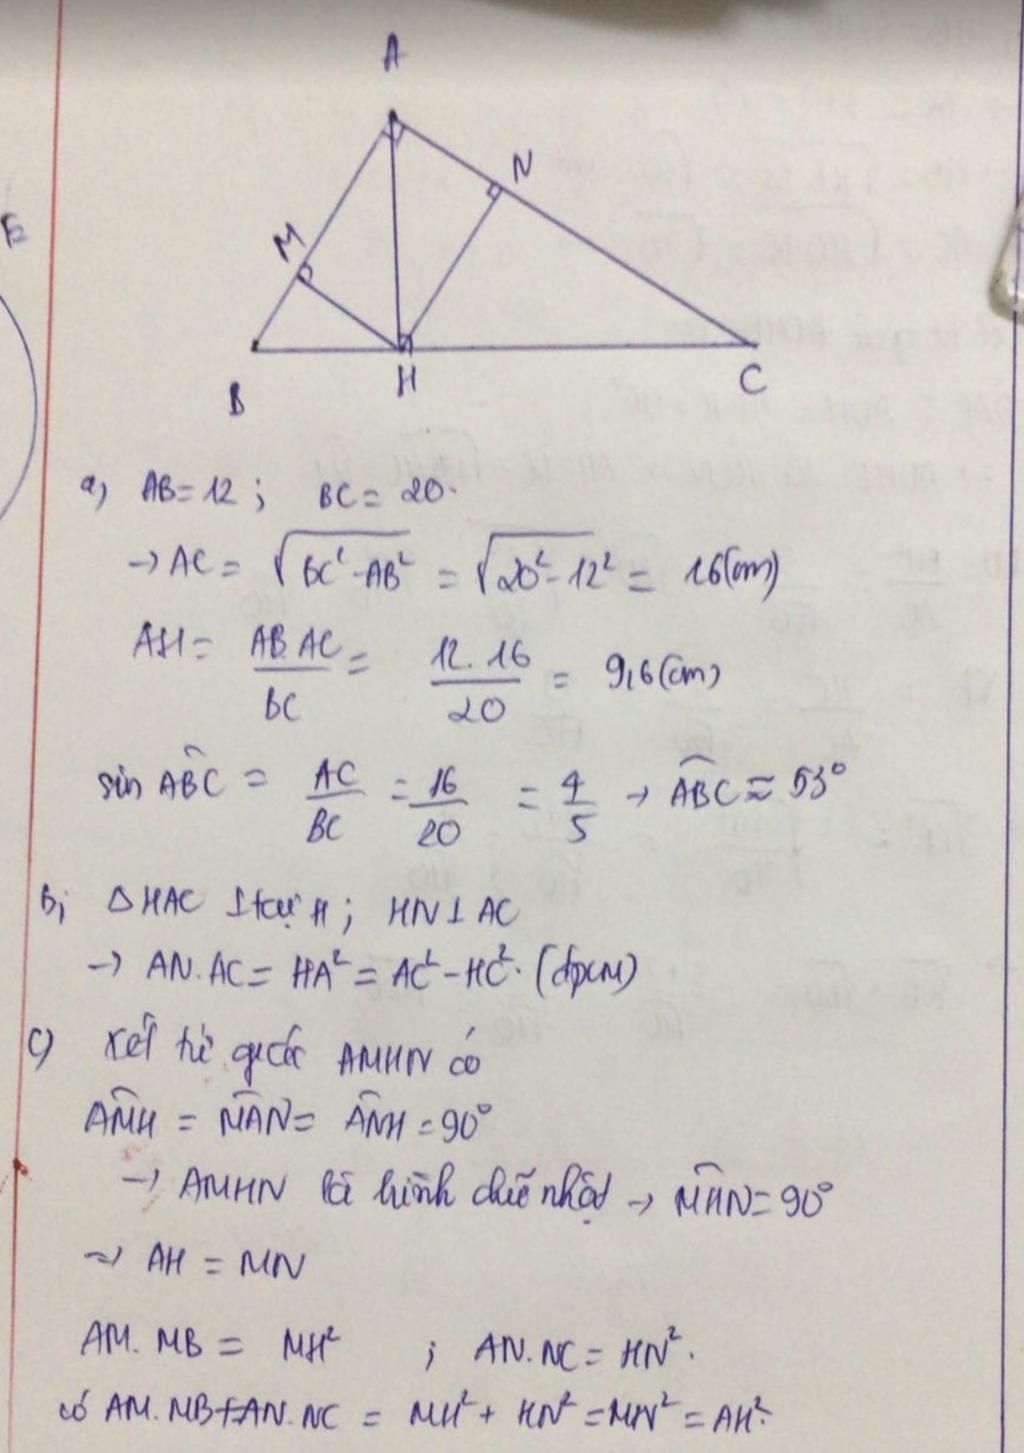 E
A
N
M
B
H
C
a) AB = 12 ; BC = 20.
→ AC = √BC² - AB² = √20² - 12² = 16(cm)
AH = AB.AC / BC = 12.16 / 20 = 9,6(cm)
sin ABC = AC / BC = 16 / 20 = 4 / 5 → ABC ≈ 53°
b; △HAC ⊥ tại H ; HN ⊥ AC
→ AN.AC = HA² = AC² - HC². (đpcm)
c) Xét tứ giác AMHN có
AMH = MAN = ANH = 90°
→ AMHN là hình chữ nhật → MHN = 90°
→ AH = MN
AM.MB = MH² ; AN.NC = HN².
có AM.MB + AN.NC = MH² + HN² = MN² = AH².